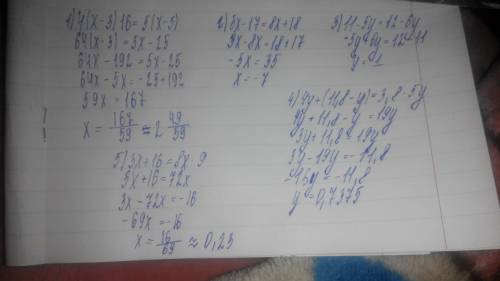 1) 4(x-3)16=5(x-5)
64(x-3)=5x-25
64x-192=5x-25
64x-5x=-25+192
59x=167
x=167/59≈2 49/59
2) 3x-17=8x+18
3x-8x=18+17
-5x=35
x=-7
3) 11-5y=12-6y
-5y+6y=12-11
y=1
4) 4y+(11,8-y)=3,8-5y
4y+11,8-y=19y
3y+11,8=19y
3y-19y=-11,8
-16y=-11,8
y=0,7375
5) 3x+16=8x 9
3x+16=72x
3x-72x=-16
-69x=-16
x=16/69≈0,23